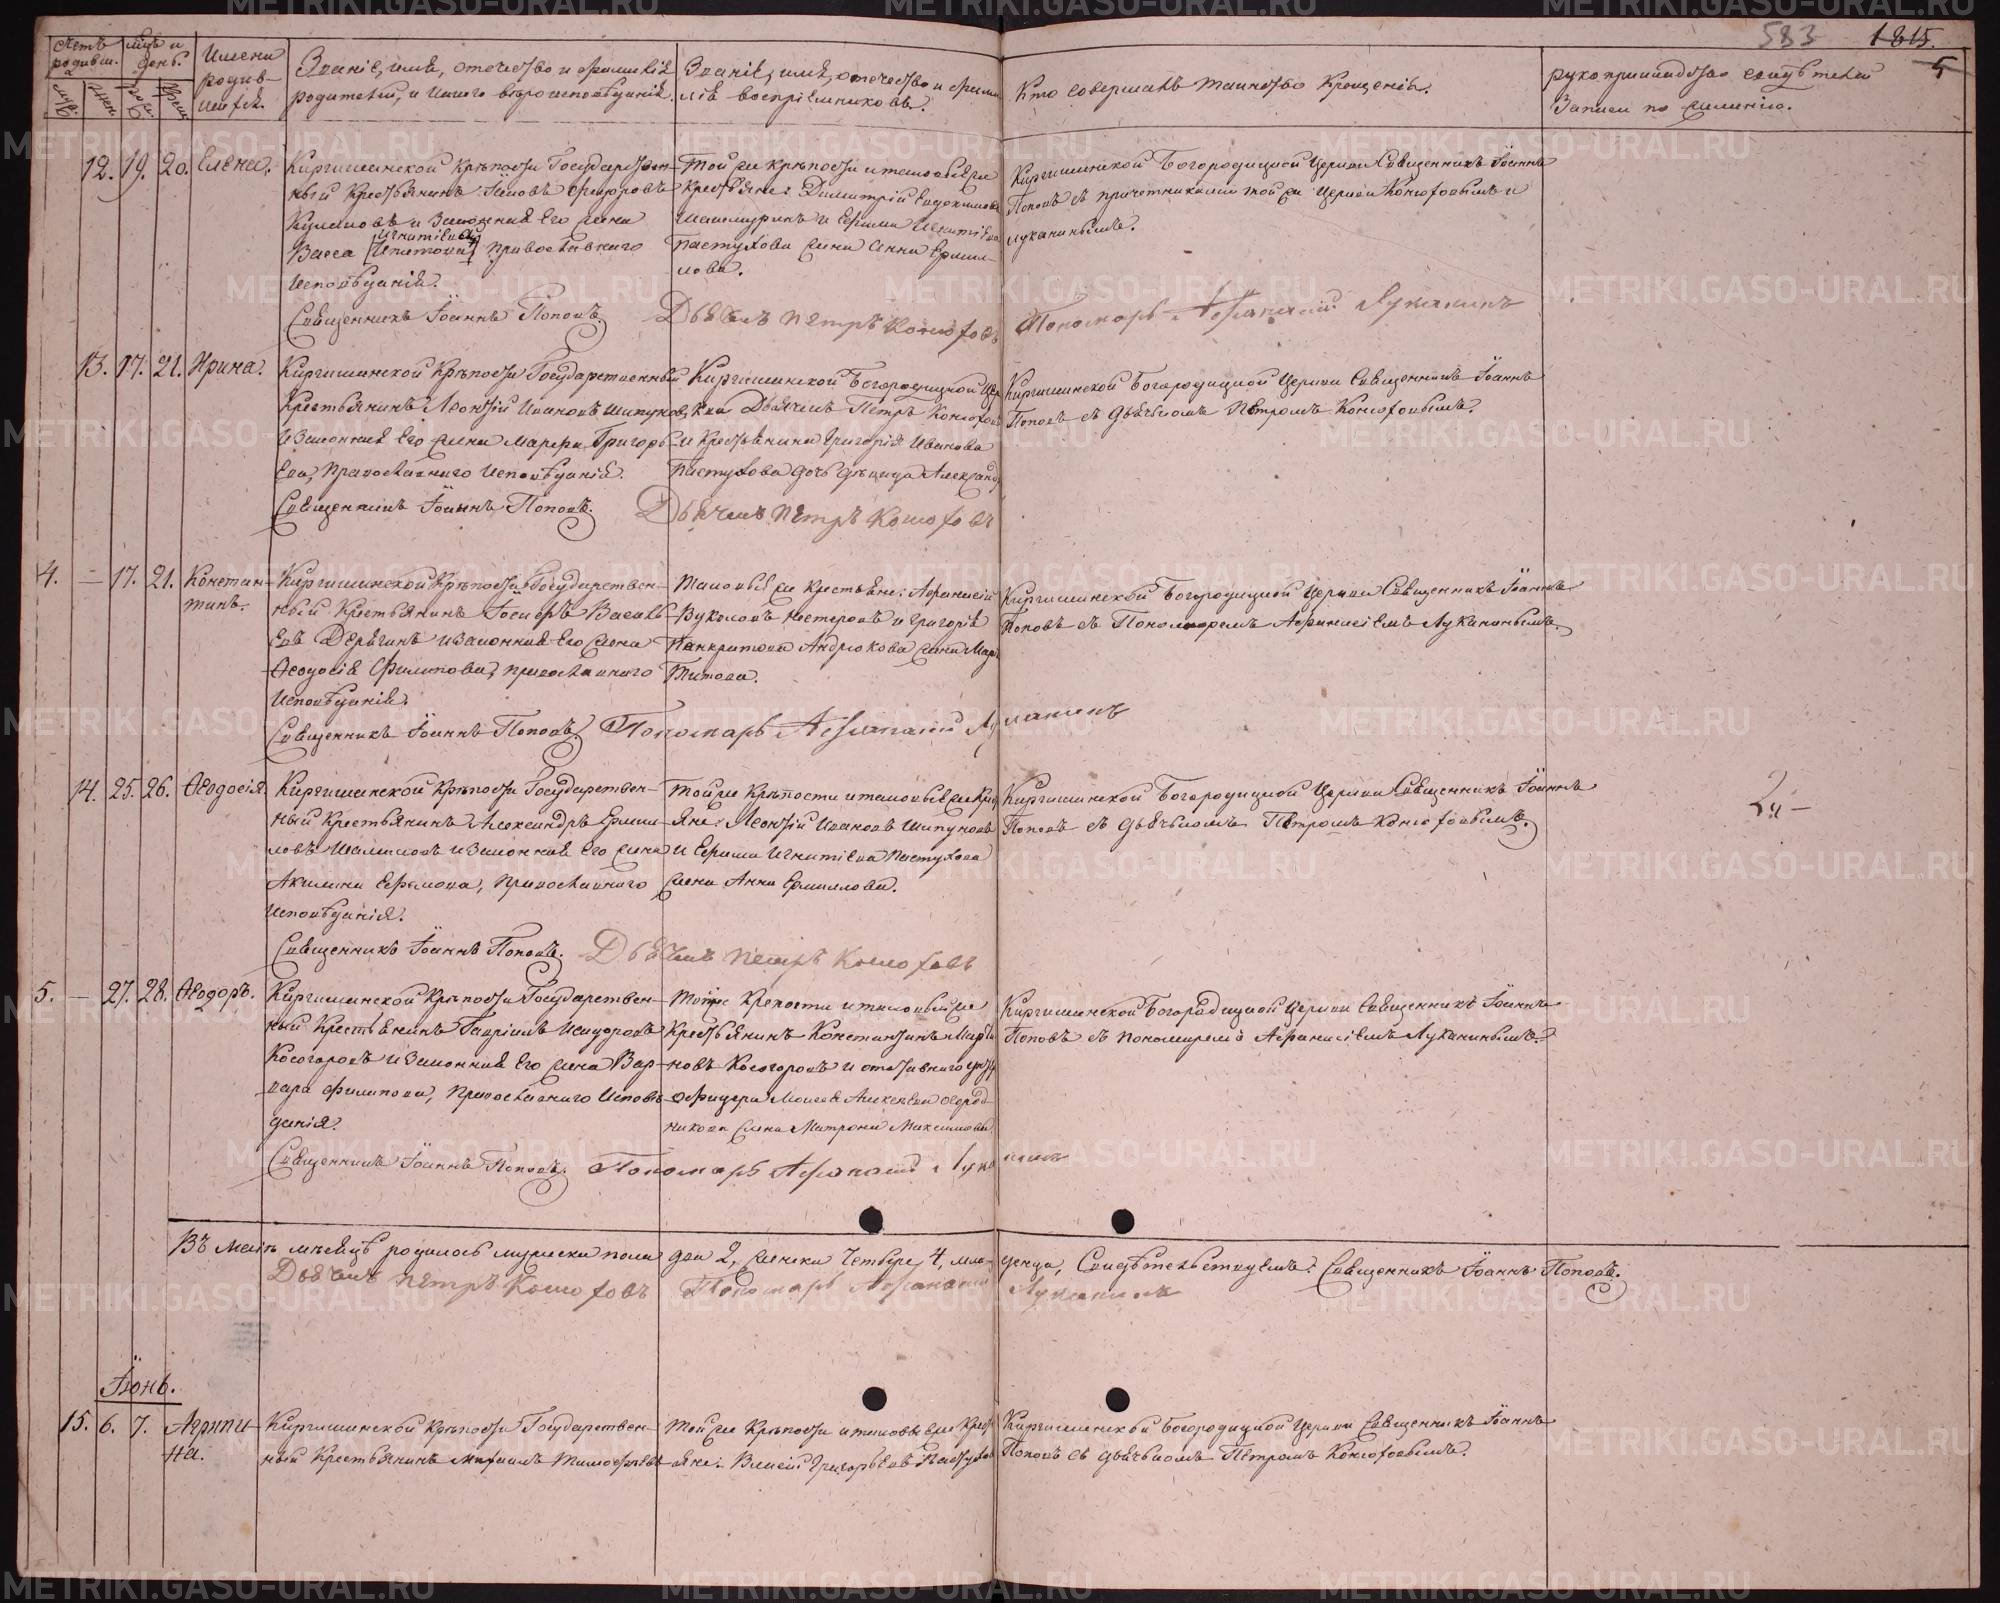 583 1815.
5
Счетъ родивш. Мцъ и день. Имена родив-шихся. Званіе, имя, отечество и фамилія родителей, и какого вѣроисповѣданія. Званіе, имя, отечество и фамилія воспріемниковъ. Кто совершалъ таинство Крещенія. рукоприкладство свидѣтелей Записи по желанію.
12. 19. 20. Елена.
Киргишанской крѣпости Государствен-
ный Крестьянинъ Іаковъ Ѳедоровъ
и Законная Его жена
Васса Игнатіева Православнаго
Исповѣданія.
Священникъ Іоаннъ Поповъ
Той же крѣпости и таковые же
Крестьяне: Димитрій Евдокимовъ
и Ефима Игнатіева
Пастухова жена Анна Ермил-
лова.
Дьячекъ Петръ Конюховъ
Киргишанской Богородицкой Церкви Священникъ Іоаннъ
Поповъ съ причетниками той же Церкви Конюховымъ и
Луканинымъ.
Пономарь Афанасій Луканинъ
13. 17. 21. Ирина.
Киргишанской Крѣпости Государственный
Крестьянинъ Леонтій Ивановъ Шипуновъ,
и Законная Его жена Марфа Григорь-
ева, Православнаго Исповѣданія.
Священникъ Іоаннъ Поповъ.
Киргишанской Богородицкой Цер
кви Дьячекъ Петръ Конюховъ
и Крестьянина Григорія Иванова
Пастухова дочь дѣвица Александ
Дьячекъ Петръ Конюховъ
Киргишанской Богородицкой Церкви Священникъ Іоаннъ
Поповъ съ дьячкомъ Петромъ Конюховымъ.
4. — 17. 21. Констан-
тинъ.
Киргишанской Крѣпости Государствен-
ный Крестьянинъ Іосифъ Василь-
евъ Дерягинъ и Законная Его жена
Ѳеодосія Филипова, православнаго
Исповѣданія.
Священникъ Іоаннъ Поповъ
Таковые же Крестьяне: Афанасій
Вуколовъ Нестеровъ и Григорія
Панкратова Андрюкова жена Мар
Титова.
Пономарь Афанасій Луканинъ
Киргишанской Богородицкой Церкви Священникъ Іоаннъ
Поповъ съ Пономаремъ Афанасіемъ Луканинымъ.
14. 25. 26. Ѳеодосія.
Киргишанской Крѣпости Государствен-
ный Крестьянинъ Александръ Ермил-
ловъ и Законная Его жена
Акилина Ефимова, Православнаго
Исповѣданія.
Священникъ Іоаннъ Поповъ.
Той же Крѣпости и таковые же Крес
яне: Леонтій Ивановъ Шипуновъ
и Ефима Игнатіева Пастухова
жена Анна Ермиллова.
Дьячекъ Петръ Конюховъ
Киргишанской Богородицкой Церкви Священникъ Іоаннъ
Поповъ съ дьячкомъ Петромъ Конюховымъ.
5. — 27. 28. Ѳеодоръ.
Киргишанской Крѣпости Государствен-
ный Крестьянинъ Гавріилъ Исидоровъ
Косогоровъ и Законная Его жена Вар-
вара Филипова, Православнаго Исповѣ-
данія.
Священникъ Іоаннъ Поповъ.
Той же Крепости и таковый же
Крестьянинъ Константинъ Марты
новъ Косогоровъ и отставнаго унтеръ
офицера Моисея Алексѣева Огород
никова жена Матрона Максимова
Пономарь Афанасій Луканинъ
Киргишанской Богородицкой Церкви Священникъ Іоаннъ
Поповъ съ пономаремъ Афанасіемъ Луканинымъ.
Въ Маіѣ мѣсяцѣ родилось мужеска пола два 2, женска Четыре 4, мла-денца, Свидѣтельствуемъ: Священникъ Іоаннъ Поповъ.
Дьячекъ Петръ Конюховъ Пономарь Афанасій Луканинъ
Іюнь.
15. 6. 7. Агрипи-
на.
Киргишанской Крѣпости Государствен-
ный Крестьянинъ Михаилъ Тимофѣевъ
Той же Крѣпости и таковые же Крест
яне: Власій Григорьевъ Пастухов
Киргишанской Богородицкой Церкви Священникъ Іоаннъ
Поповъ съ дьячкомъ Петромъ Конюховымъ.
METRIKI.GASO-URAL.RU